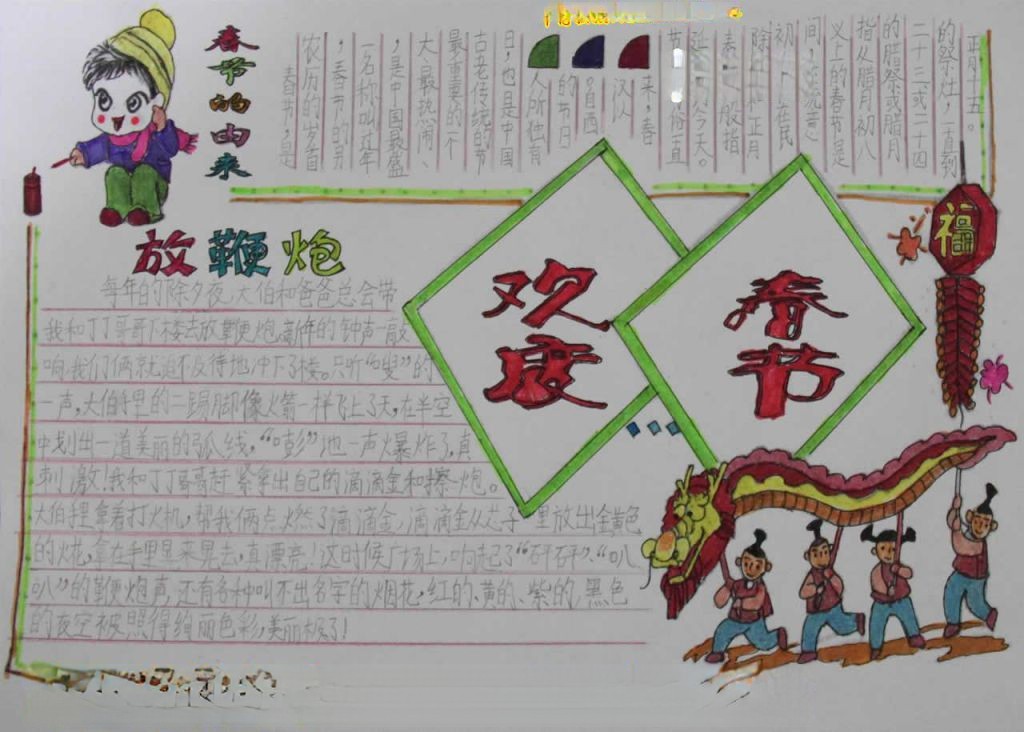 春节的由来
春节，是
农历的岁首
，春节的另
一名称叫过年
，是中国最盛
大、最热闹、
最重要的一个
古老传统的节
日，也是中国
人所独有
的节日
。自西
汉以
来，春
节习俗直
延 今天。
春 般指
除 正月
初一 在民
间，传统意
义上的春节是
指从腊月初八
的腊祭或腊月
二十三或二十四
的祭灶，一直到
正月十五。
放鞭炮
每年的除夕夜，大伯和爸爸总会带
我和丁丁哥哥下楼去放鞭炮。新年的钟声一敲
响，我们俩就迫不及待地冲下了楼。只听“嗖”的
一声，大伯手里的二踢脚像火箭一样飞上了天，在半空
中划出一道美丽的弧线，“嘭”地一声爆炸了，真
刺激！我和丁丁哥哥赶紧拿出自己的滴滴金和擦炮。
大伯捏拿着打火机，帮我俩点燃了滴滴金，滴滴金从芯子里放出金黄色
的火花，拿在手里晃来晃去，真漂亮！这时候广场上，响起了“砰砰”、“叭
叭”的鞭炮声，还有各种叫不出名字的烟花，红的、黄的、紫的，黑色
的夜空被照得绚丽色彩，美丽极了！
欢度
春节
福